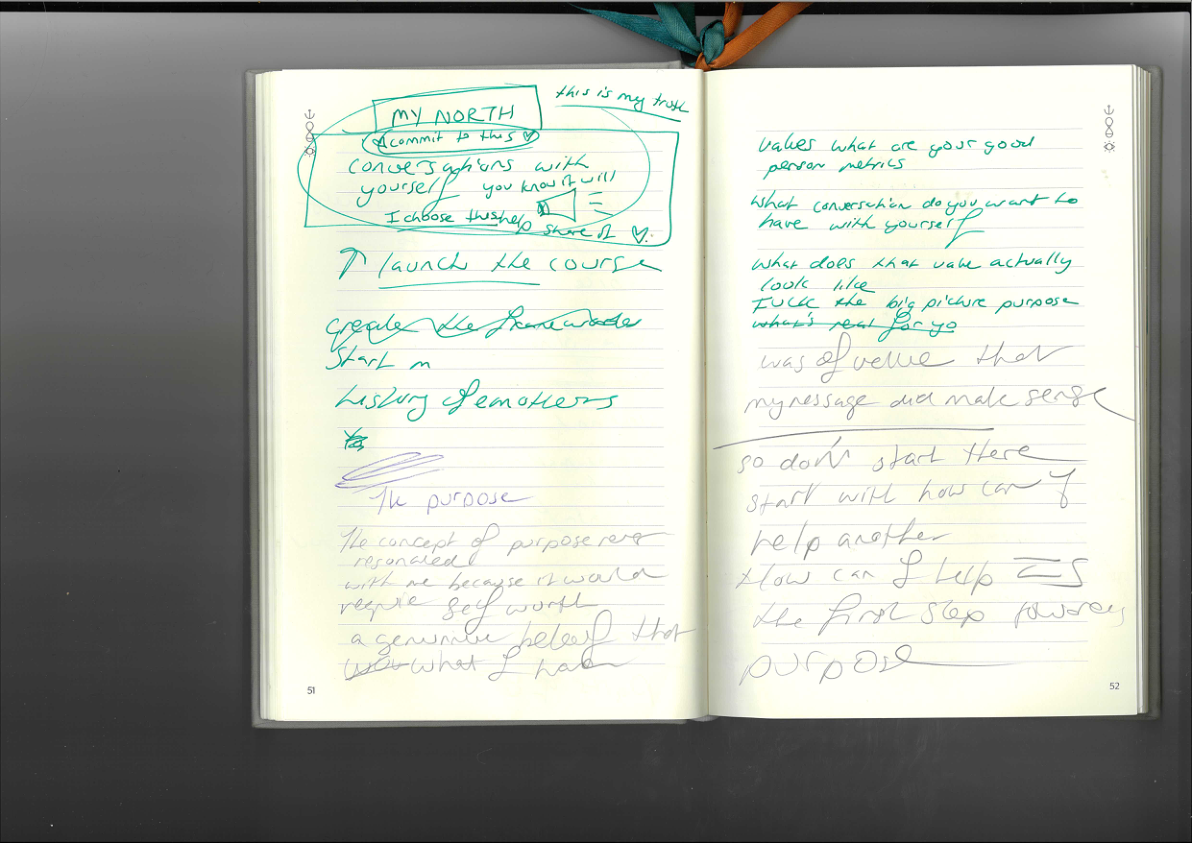 this is my truth
MY NORTH
commit to this
conversations with
yourself you know it will
I choose this help
share it
launch the course
create the framework
Start m
history of emotions
The purpose
The concept of purpose never
resonated
with me because it would
require self worth
a genuine beleif that
what I have
51
values what are your good
person metrics
What conversation do you want to
have with yourself
What does that value actually
look like
FUCK the big picture purpose
what's real for yo
was of value that
my message did make sense
so don't start there
start with how can I
help another
How can I help IS
the first step towards
purpose
52